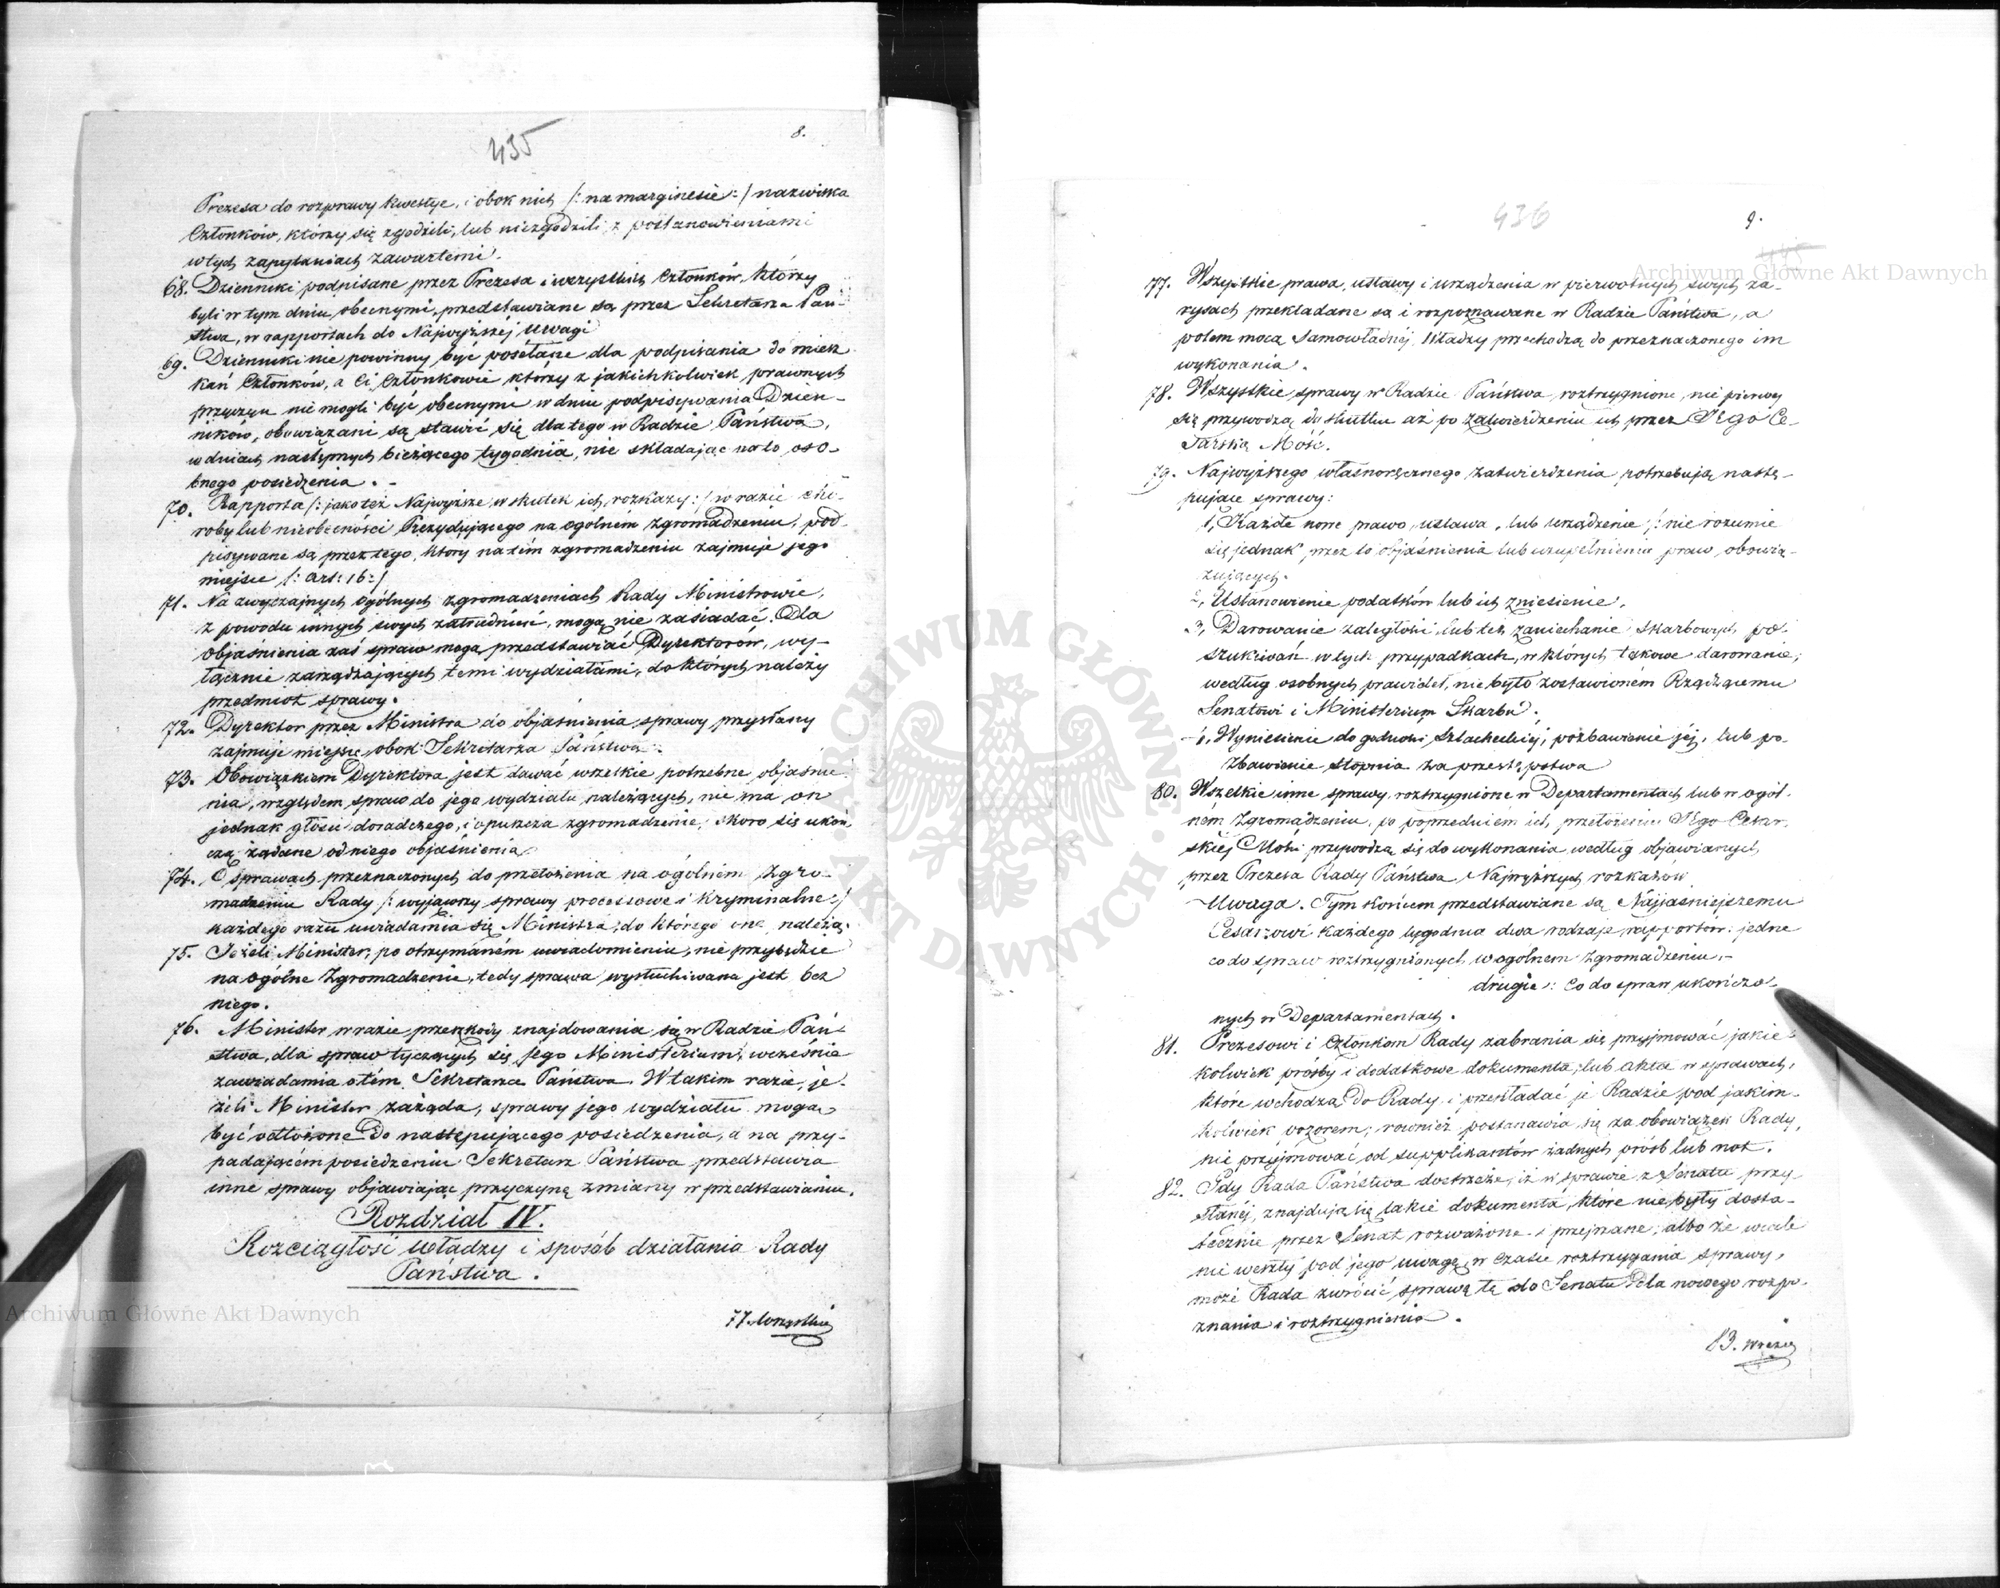 435
8.
Prezesa do rozprawy kwestye, i obok nich /: na marginesie :/ nazwiska
Członków, którzy się zgodzili, lub niezgodzili, z postanowieniami
w tych zapytaniach zawartemi.
68. Dzienniki podpisane przez Prezesa i wszystkich Członków, którzy
byli w tym dniu obecnymi, przedstawiane są przez Sekretarza Pań-
stwa, w rapportach do Najwyższej Uwagi
69. Dzienniki nie powinny być posełane dla podpisania do miesz
kań Członków, a Ci Członkowie którzy z jakichkolwiek prawnych
przyczyn nie mogli być obecnymi w dniu podpisywania Dzien-
ników, obowiązani są stawić się dla tego w Radzie Państwa,
w dniach następnych bieżącego tygodnia, nie składając na to oso-
bnego posiedzenia.
70. Rapporta /: jako też Najwyższe w skutek ich, rozkazy :/ w razie cho-
roby lub nieobecności Prezydującego na ogólném zgromadzeniu, pod-
pisywane są przez tego, który na tém zgromadzeniu zajmuje jego
miejsce /: art: 16 :/
71. Na zwyczajnych ogólnych zgromadzeniach Rady Ministrowie,
z powodu innych swych zatrudnień, mogą nie zasiadać. Dla
objaśnienia zaś spraw mogą przedstawiać Dyrektorów, wy-
łącznie zarządzających temi wydziałami, do których należy
przedmiot sprawy.
72. Dyrektor przez Ministra do objaśnienia sprawy przysłany
zajmuje miejsce obok Sekretarza Państwa.
73. Obowiązkiem Dyrektora jest dawać wszelkie potrzebne objaśnie
nia, względem spraw do jego wydziału należących, nie ma on
jednak głosu doradczego, i opuszcza zgromadzenie, skoro się ukoń
czą żądane od niego objaśnienia
74. O sprawach przeznaczonych do przełożenia na ogólném zgro-
madzeniu Rady /: wyjąwszy sprawy processowe i kryminalne :/
każdego razu uwiadamia się Ministra, do którego one należą.
75. Jeżeli Minister, po otrzymaném uwiadomieniu, nie przybędzie
na ogólne Zgromadzenie, tedy sprawa wysłuchiwana jest bez
niego.
76. Minister w razie przeszkody znajdowania się w Radzie Pań-
stwa, dla spraw tyczących się Jego Ministerium, wcześnie
zawiadamia o tém Sekretarza Państwa. W takim razie, je-
żeli Minister zażąda, sprawy jego wydziału mogą
być odłożone do następującego posiedzenia, a na przy-
padającém posiedzeniu Sekretarz Państwa przedstawia
inne sprawy objawiając przyczynę zmiany w przedstawianiu.
Rozdział IV.
Rozciągłość władzy i sposób działania Rady
Państwa.
77. Wszystkie
436
9.
77. Wszystkie prawa, ustawy i urządzenia w pierwotnych swych za-
rysach przekładane są i rozpoznawane w Radzie Państwa, a
potem mocą Samowładnéj Władzy przechodzą do przeznaczonego im
wykonania.
78. Wszystkie sprawy w Radzie Państwa roztrzygnione, nie pierwej
się przywodzą do skutku aż po zatwierdzeniu ich przez Jego Ce-
sarską Mość.
79. Najwyższego własnoręcznego zatwierdzenia potrzebują nastę-
pujące sprawy:
1, Każde nowe prawo, ustawa, lub urządzenie /: nie rozumie
się jednak przez to objaśnienia lub uzupełnienia praw, obowią-
zujących.
2, Ustanowienie podatków lub ich zniesienie.
3, Darowanie zaległości lub też zaniechanie skarbowych po-
szukiwań w tych przypadkach, w których takowe darowanie,
według osobnych prawideł, nie było zostawioném Rządzącemu
Senatowi i Ministerium Skarbu.
4, Wyniesienie do godności Szlacheckiej, pozbawienie jéj, lub po-
zbawienie stopnia za przestępstwa
80. Wszelkie inne sprawy, roztrzygnione w Departamentach lub w ogól-
ném Zgromadzeniu, po poprzedniém ich przełożeniu Jego Cesar-
skiej Mości przywodzą się do wykonania według objawianych
przez Prezesa Rady Państwa Najwyższych rozkazów
Uwaga. Tym końcem przedstawiane są Najjaśniejszemu
Cesarzowi każdego tygodnia dwa rodzaje rapportów: jedne
co do spraw roztrzygnionych w ogólnem zgromadzeniu,
drugie: co do spraw ukończo-
nych w Departamentach.
81. Prezesowi i Członkom Rady zabrania się przyjmować jakie-
kolwiek prośby i dodatkowe dokumenta, lub akta w sprawach,
które wchodzą do Rady i przekładać je Radzie pod jakim-
kolwiek pozorem; również postanawia się za obowiązek Rady,
nie przyjmować od supplikantów żadnych próśb lub not.
82. Gdy Rada Państwa dostrzeże, iż w sprawie z Senatu przy-
słanéj, znajdują się takie dokumenta, które nie były dosta-
tecznie przez Senat rozważone i przejrzane, albo że wcale
nie weszły pod jego uwagę w czasie roztrzygania sprawy,
może Rada zwrócić sprawę tę do Senatu dla nowego rozpo-
znania i roztrzygnienia.
83. W razie
Archiwum Główne Akt Dawnych
Archiwum Główne Akt Dawnych
ARCHIWUM GŁÓWNE AKT DAWNYCH